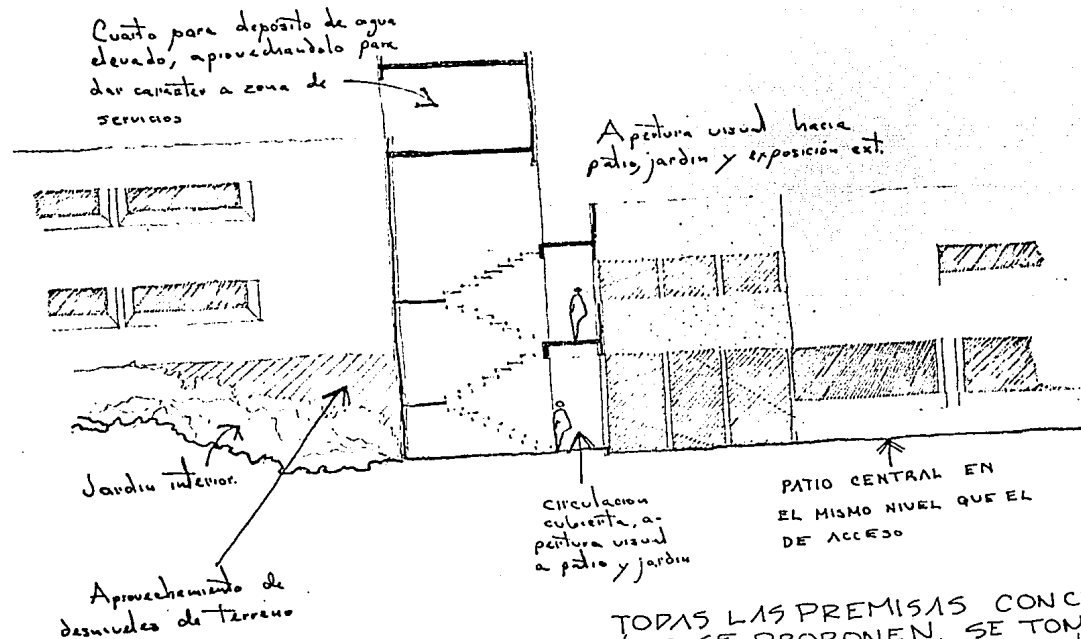 Cuarto para depósito de agua
elevado, aprovechandolo para
dar carácter a zona de
servicios
Apertura visual hacia
patio, jardin y exposición ext.
Jardin interior.
Aprovechamiento de
desniveles de terreno
circulacion
cubierta, a-
pertura visual
a patio y jardin
PATIO CENTRAL EN
EL MISMO NIVEL QUE EL
DE ACCESO
TODAS LAS PREMISAS CONC
SE PROPONEN, SE TOM